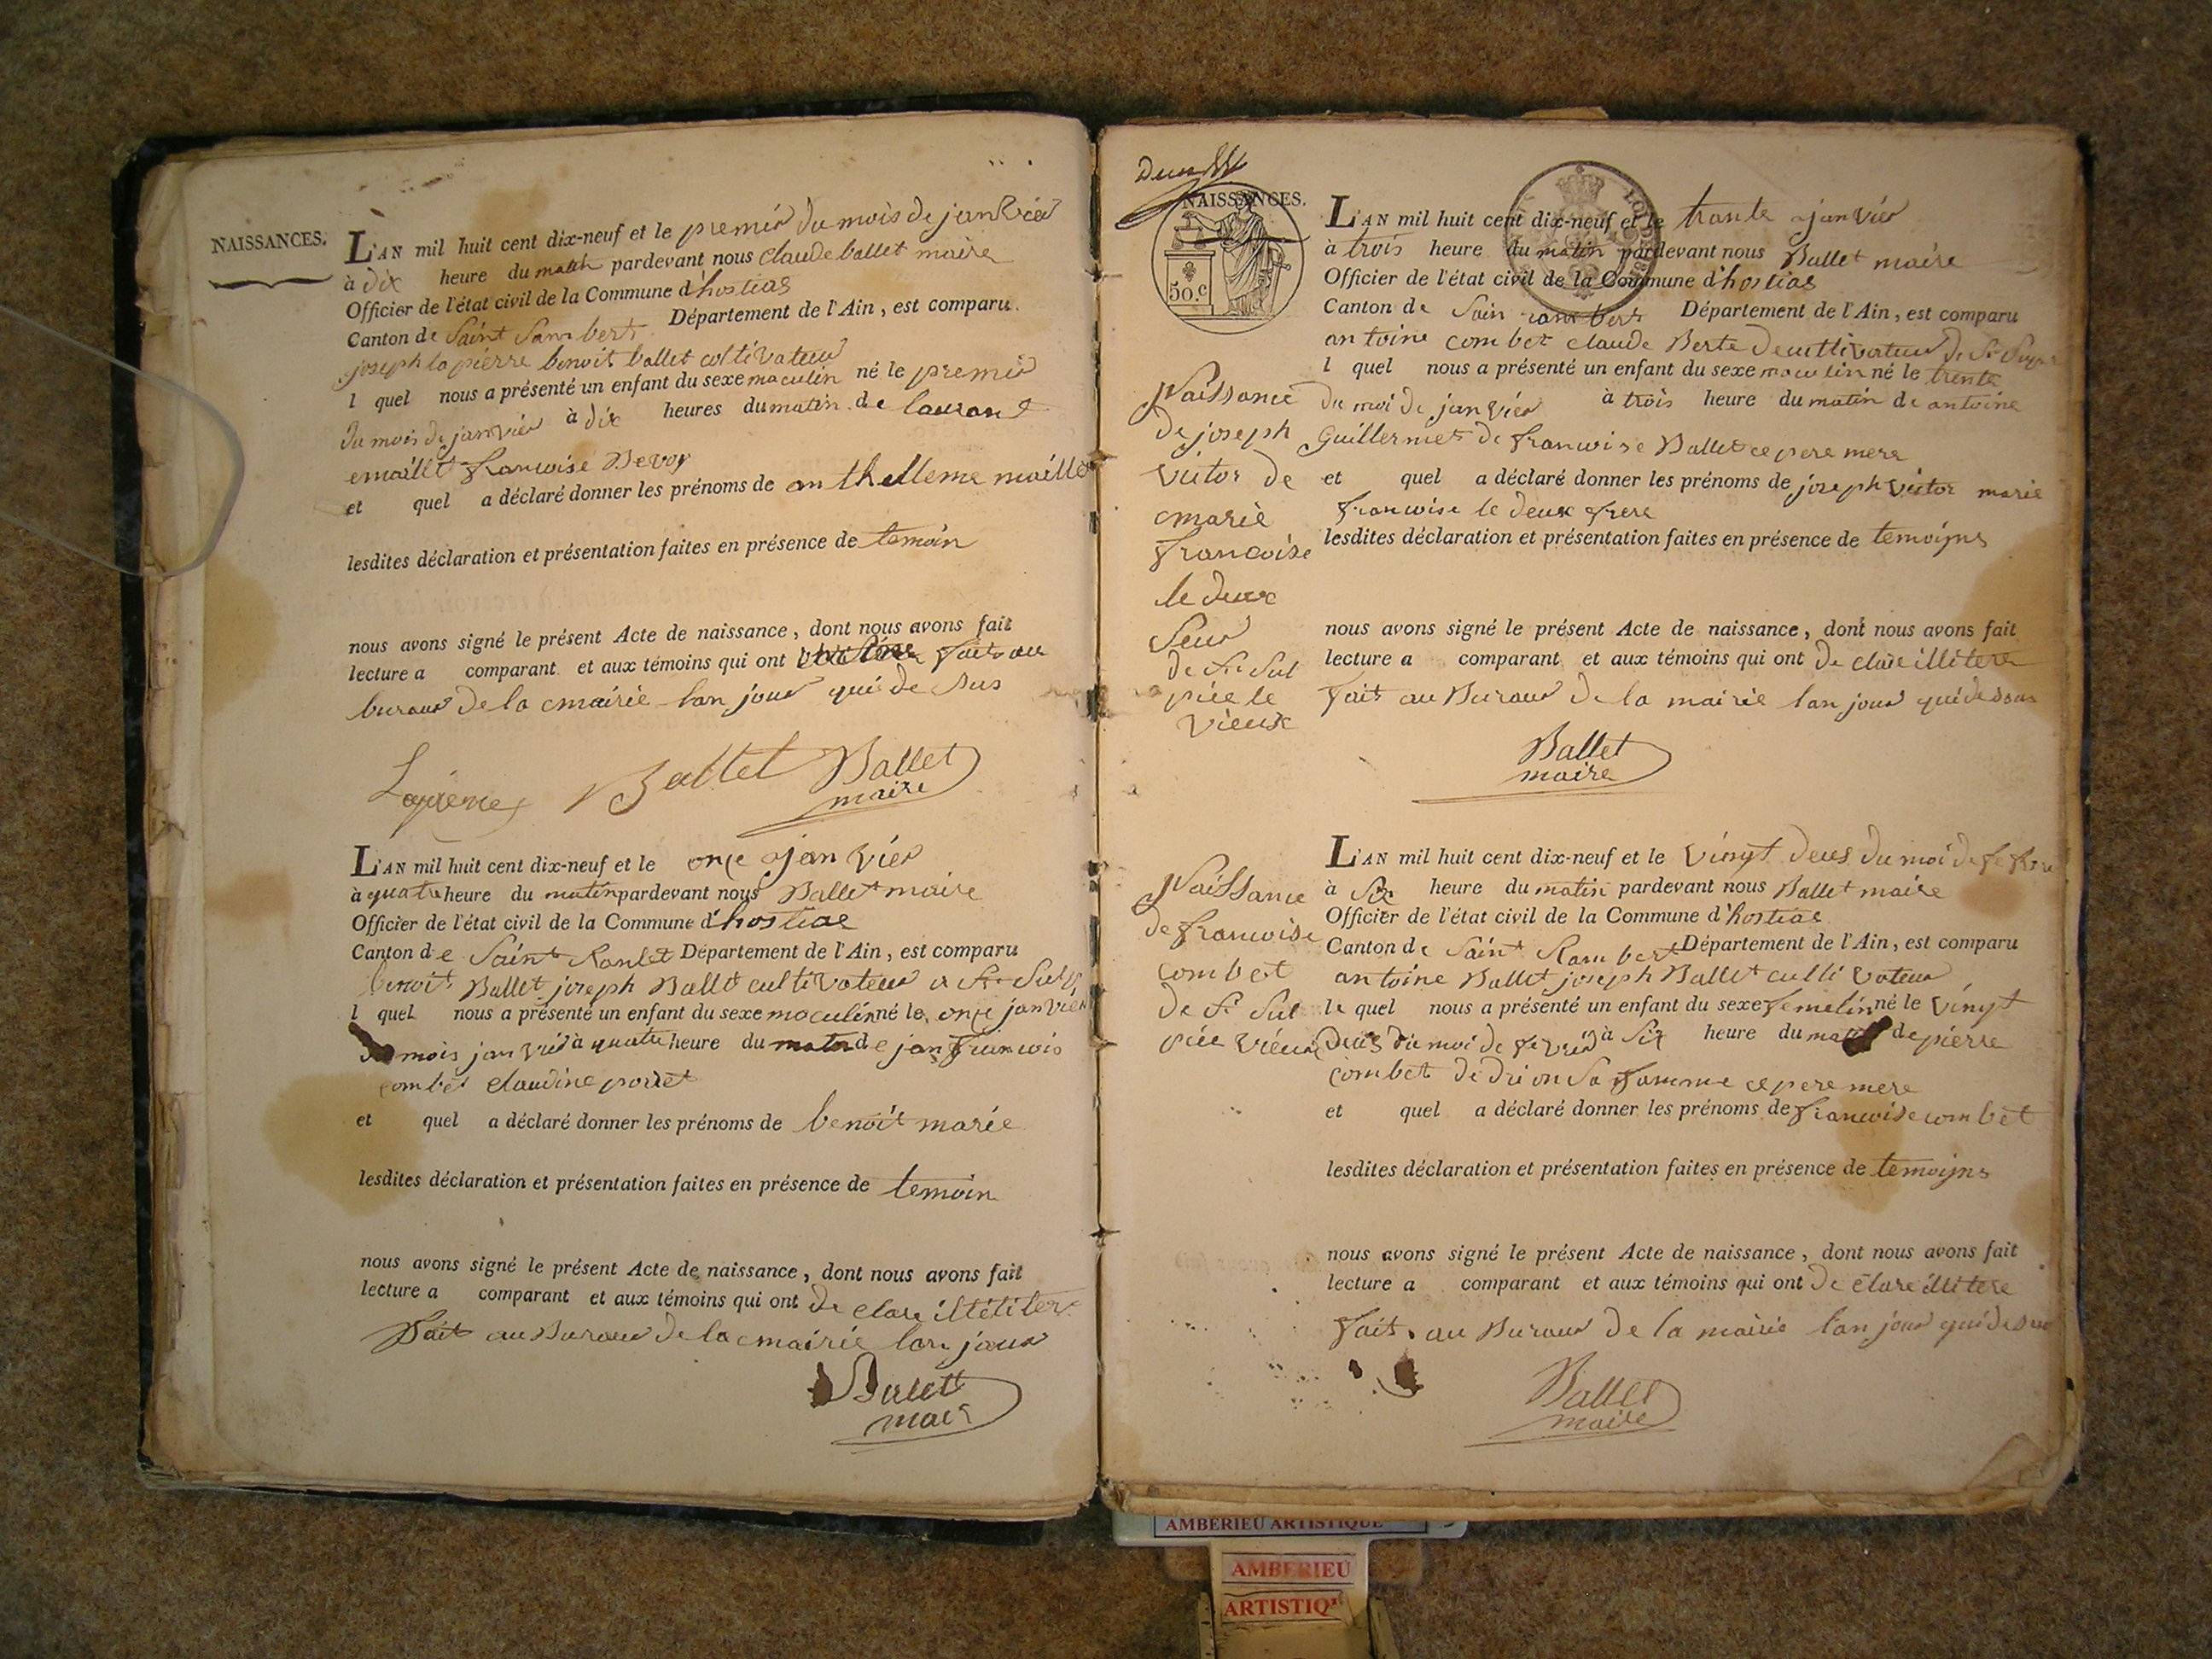 NAISSANCES.
L'AN mil huit cent dix-neuf et le premier du mois de janvier
à dix heure du matin pardevant nous claude ballet maire
Officier de l'état civil de la Commune d'hostias
Canton de Saint Rambert Département de l'Ain, est comparu
joseph lapierre benoit ballet coltivateur
l quel nous a présenté un enfant du sexe maculin né le premier
du mois de janvier à dix heures du matin de laurant
emaillet francoise Devoy
et quel a déclaré donner les prénoms de anthelleme maillet
lesdites déclaration et présentation faites en présence de temoin
nous avons signé le présent Acte de naissance, dont nous avons fait
lecture a comparant et aux témoins qui ont fait au
buraux de la mairie lan jour qui de sus
Lapierre Ballet Ballet
maire
L'AN mil huit cent dix-neuf et le onze janvier
à quatre heure du matin pardevant nous Ballet maire
Officier de l'état civil de la Commune d'hostias
Canton de Saint Département de l'Ain, est comparu
benoit Ballet joseph Ballet cultivateur a St Sulp
l quel nous a présenté un enfant du sexe maculin né le onze janvier
mois janvier à quatre heure du matin de jan francois
combet claudine porret
et quel a déclaré donner les prénoms de benoit marie
lesdites déclaration et présentation faites en présence de temoin
nous avons signé le présent Acte de naissance, dont nous avons fait
lecture a comparant et aux témoins qui ont de clare
Fait au Buraux de la mairie lan jour
Ballet
maire
NAISSANCES.
50.c
L'AN mil huit cent dix-neuf et le trante janvier
à trois heure du matin pardevant nous Ballet maire
Officier de l'état civil de la Commune d'hostias
Canton de Sain rambert Département de l'Ain, est comparu
antoine combet claude Berte cultivateur de St
l quel nous a présenté un enfant du sexe maculin né le trente
du moi de janvier à trois heure du matin de antoine
Guillermet de francoise Ballet ce pere mere
et quel a déclaré donner les prénoms de joseph victor marie
francoise le deux frere
lesdites déclaration et présentation faites en présence de temoigns
nous avons signé le présent Acte de naissance, dont nous avons fait
lecture a comparant et aux témoins qui ont de clare illitere
Fait au Buraux de la mairie lan jour qui dessus
Ballet
maire
Naissance
de joseph
victor de
marie
francoise
le deux
Seur
de St Sul
pice le
vieux
L'AN mil huit cent dix-neuf et le vingt deus du moi de
à Six heure du matin pardevant nous Ballet maire
Officier de l'état civil de la Commune d'hostias
Canton de Saint Rambert Département de l'Ain, est comparu
antoine Ballet joseph Ballet cultivateur
le quel nous a présenté un enfant du sexe femelin né le vingt
deus du moi de fevrier à Six heure du matin de pierre
combet de drion Sa famme ce pere mere
et quel a déclaré donner les prénoms de francoise combet
lesdites déclaration et présentation faites en présence de temoigns
nous avons signé le présent Acte de naissance, dont nous avons fait
lecture a comparant et aux témoins qui ont de clare illitere
Fait au Buraux de la mairie lan jour qui desus
Ballet
maire
Naissance
de francoise
combet
de St Sul
pice vieux
AMBERIEU ARTISTIQUE
AMBERIEU
ARTISTIQ